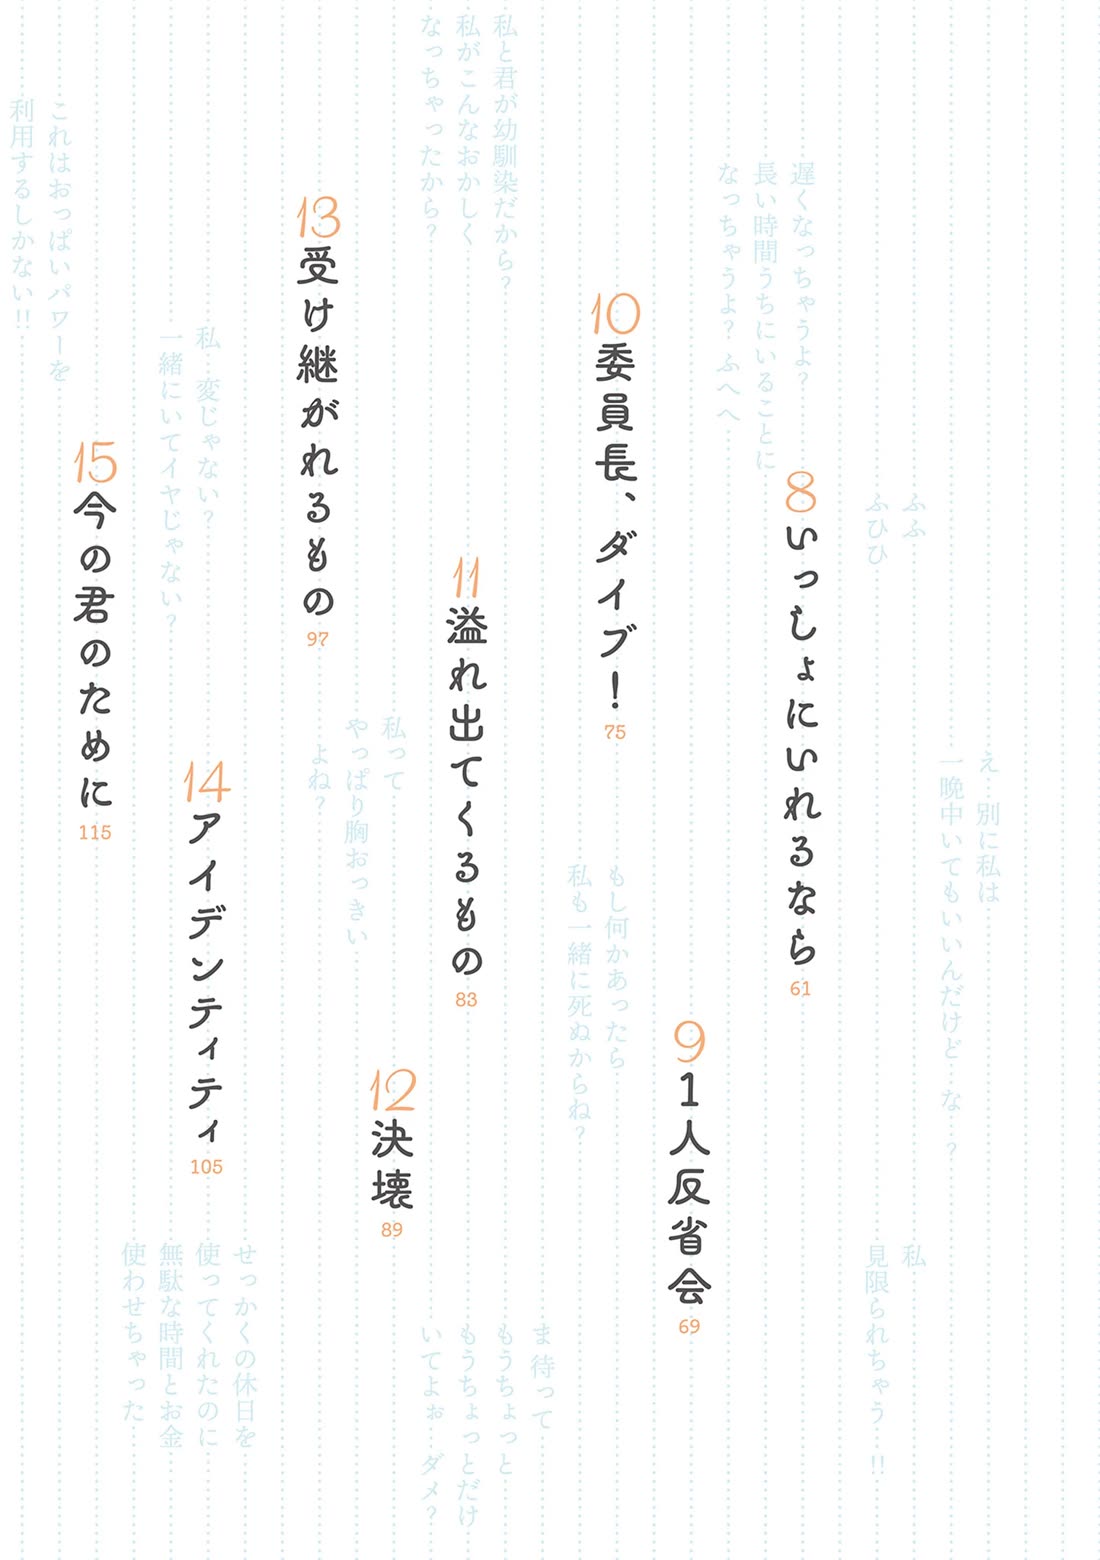 え 別に私は
一晩中いてもいいんだけど な ?
ふふ
ふひひ
私
見限られちゃう !!
遅くなっちゃうよ?
長い時間うちにいることに
なっちゃうよ? ふへへ
8 いっしょにいれるなら 61
9 1人反省会 69
10 委員長、ダイブ! 75
もし何かあったら
私も一緒に死ぬからね?
私と君が幼馴染だから?
私がこんなおかしく
なっちゃったから?
ま 待って
もうちょっと
もうちょっとだけ
いてよぉ ダメ?
11 溢れ出てくるもの 83
12 決壊 89
私って
やっぱり胸おっきい
よね?
13 受け継がれるもの 97
せっかくの休日を
使ってくれたのに
無駄な時間とお金
使わせちゃった
14 アイデンティティ 105
私 変じゃない?
一緒にいてイヤじゃない?
15 今の君のために 115
これはおっぱいパワーを
利用するしかない!!